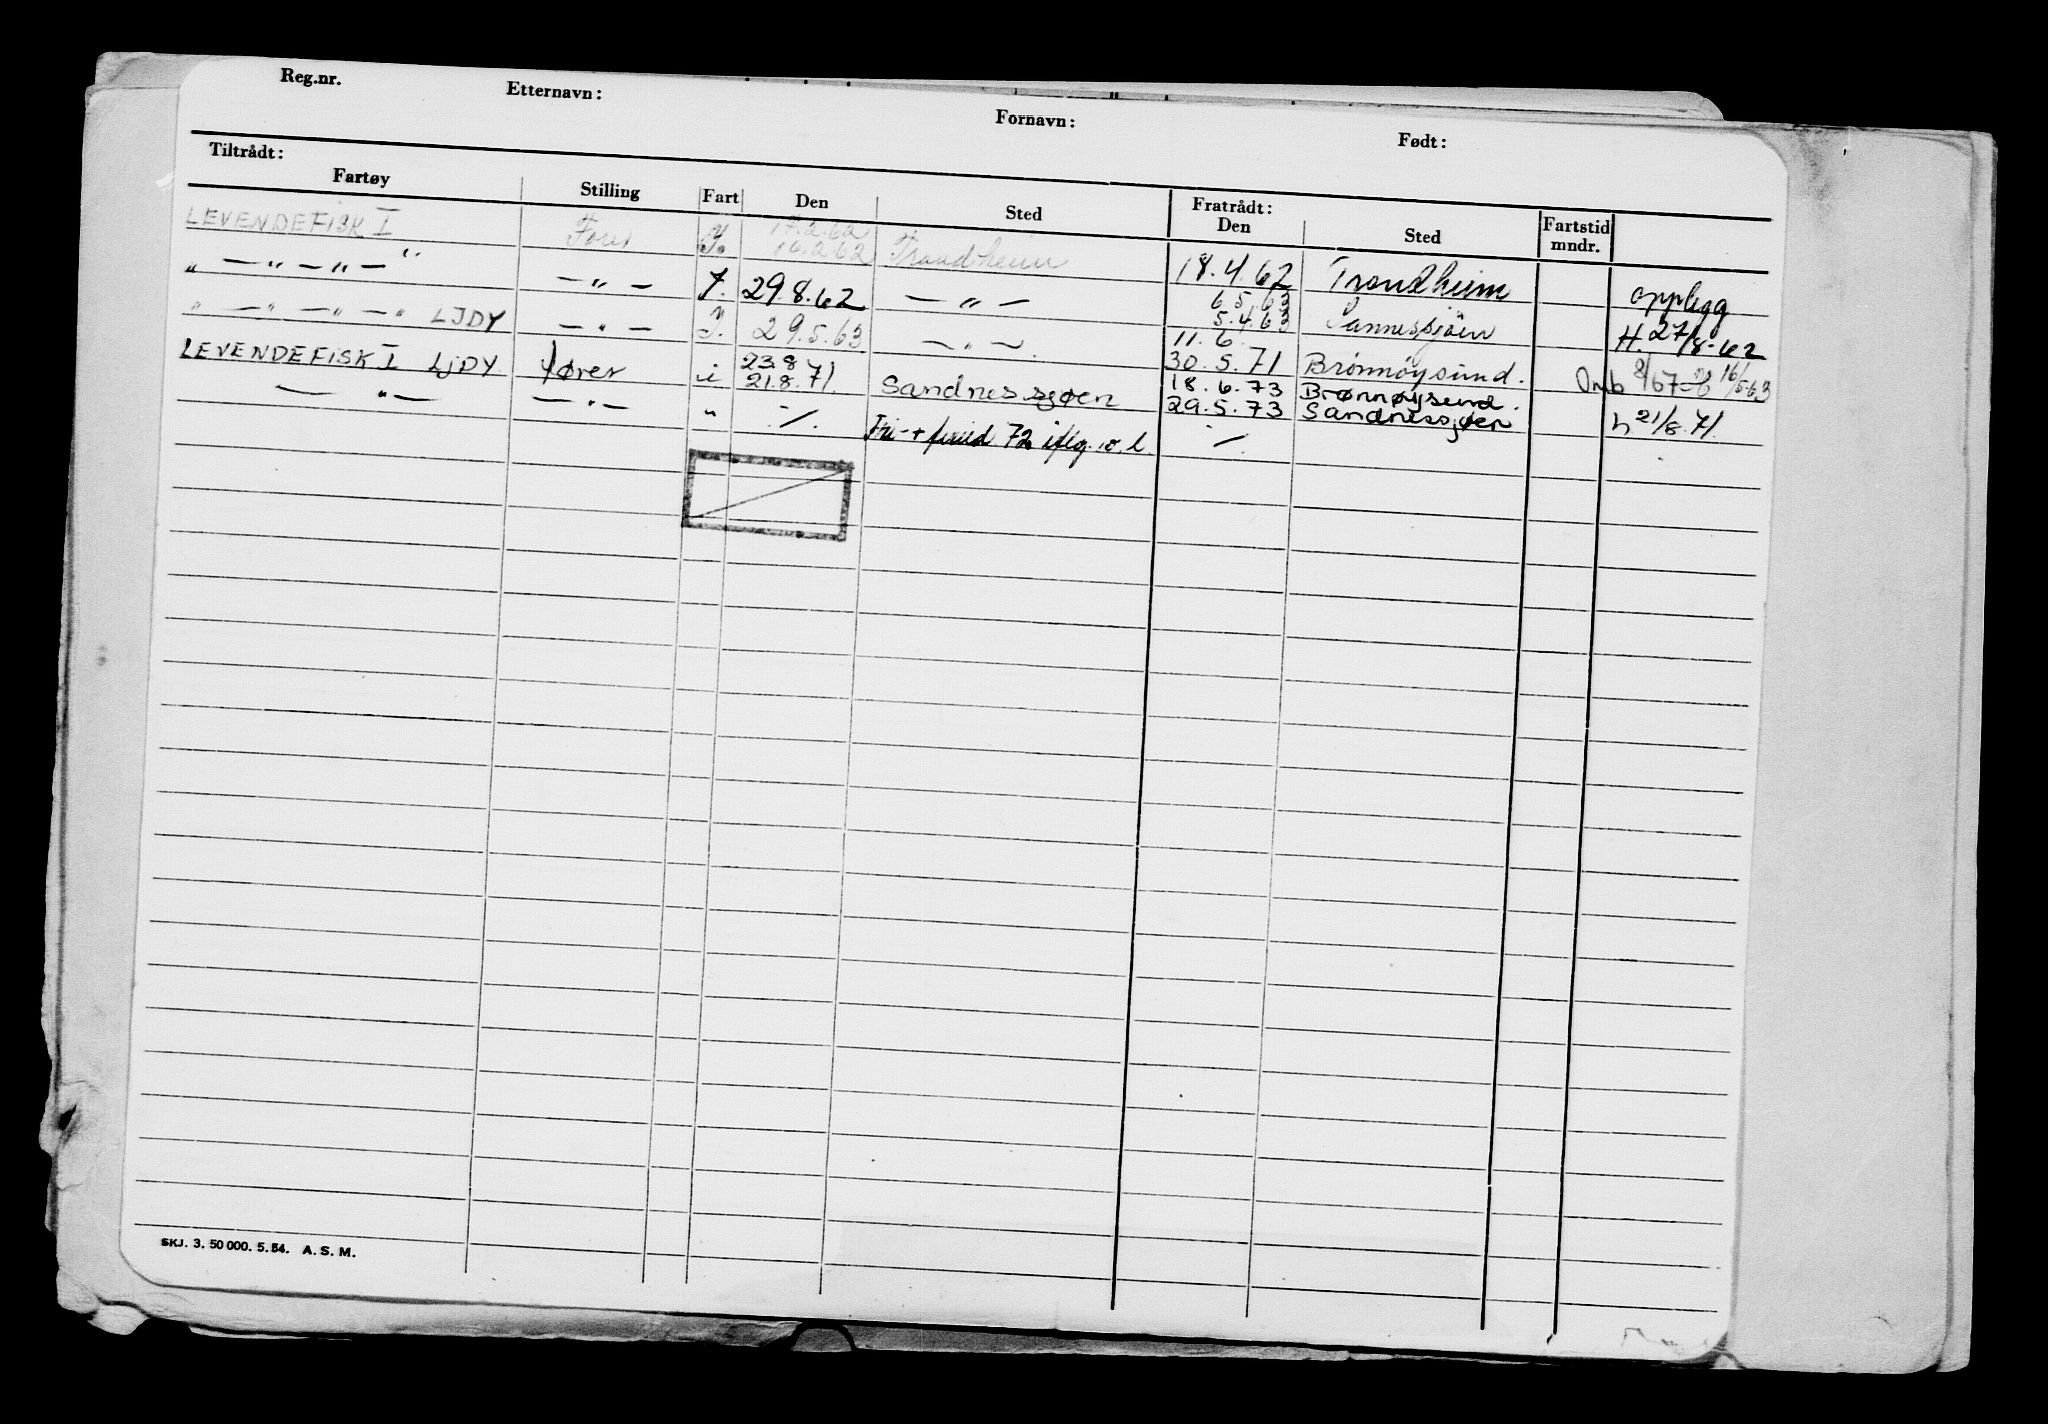 Reg.nr. Etternavn: Fornavn: Født:
Tiltrådt: Fratrådt:
Fartøy Stilling Fart Den Sted Den Sted Fartstid mndr.
17.2.62
LEVENDEFISK I Fører 16.2.62 Trondheim 18.4.62 Trondheim opplegg
" — " — " — " — " — 29.8.62 — " — 6.5.63
5.4.63 Sannessjöen H. 27/8-62
" — " — " — " LJDY — " — 29.5.63 — " — 11.6.
30.5.71 Brønnøysund. Omb 8/67 16/5 63
23.8
LEVENDEFISK I LJDY fører i 21.8.71. Sandnessjøen 18.6.73 Brønnøysund.
29.5.73 Sandnessjøen h 21/8.71.
— " — — " — " -/. Fri-+ ferietid 72 iflg. -/.
SKJ. 3. 50 000. 5. 54. A. S. M.